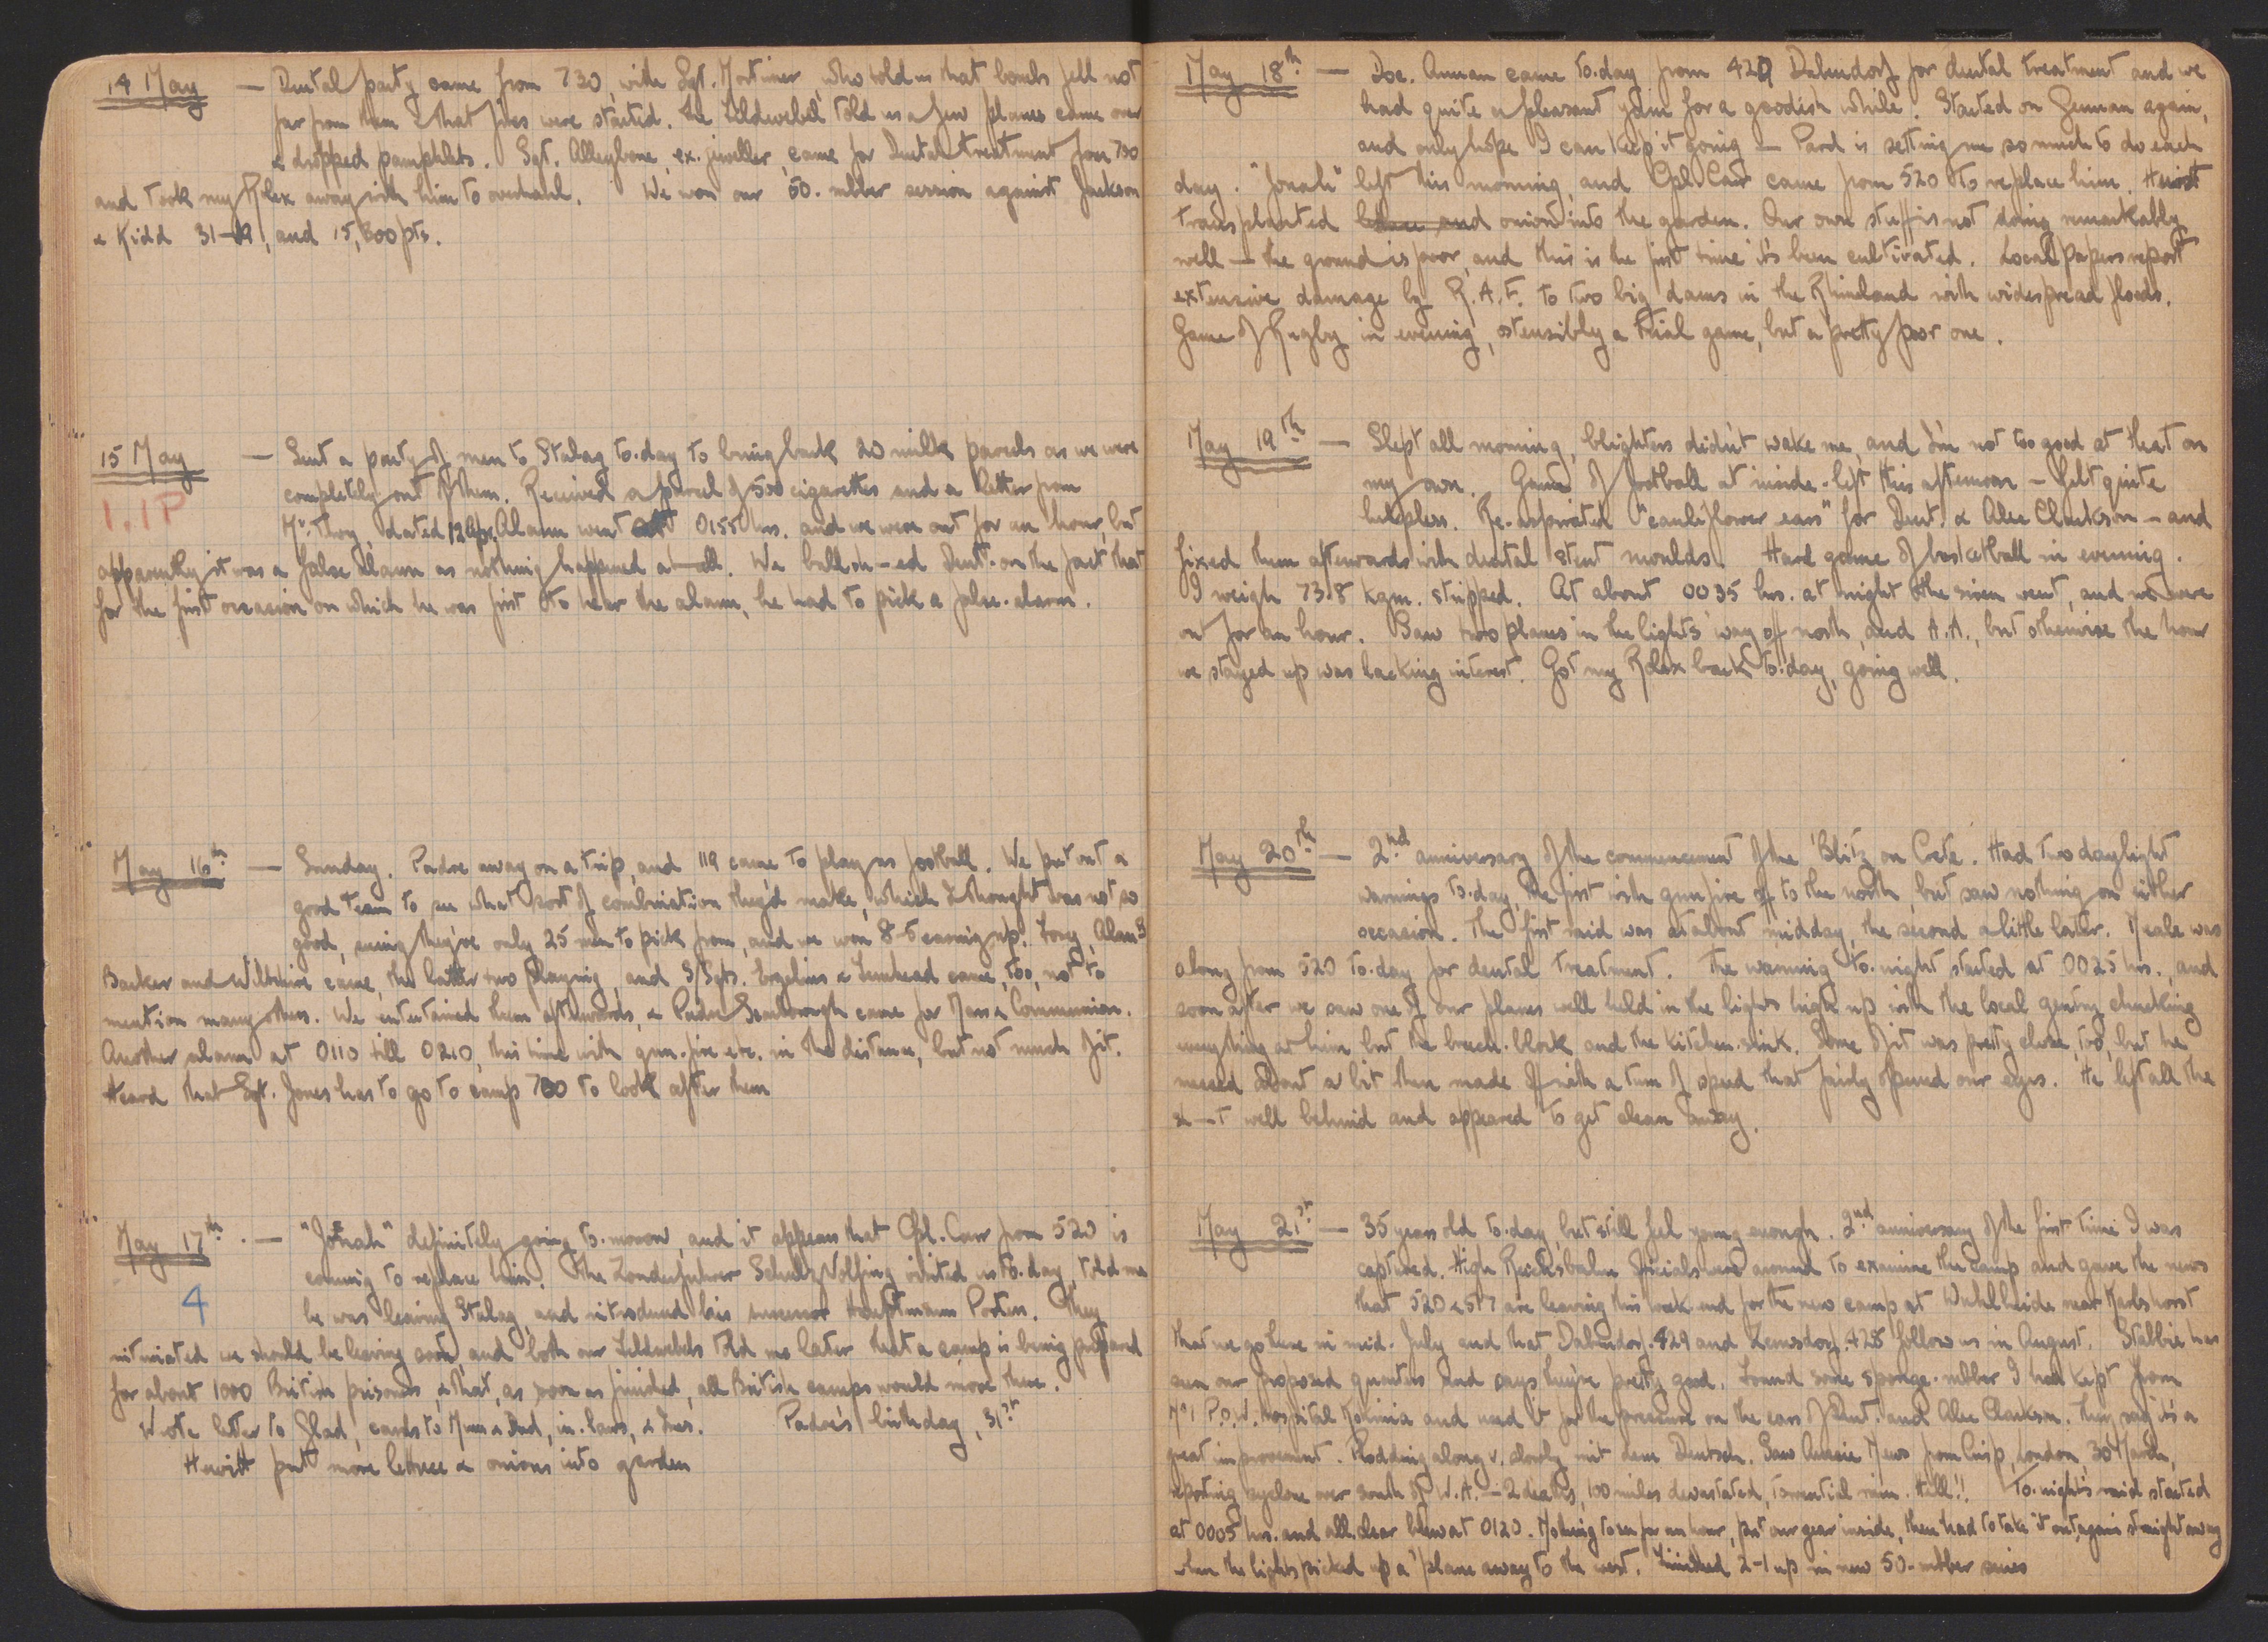 14 May — Dental party came from 730, with Sgt. Mortimer, who told us that bombs fell not
far from them & that fires were started. The Feldwebel told us a few planes came over
& dropped pamphlets. Sgt. Alleybone, ex. jeweller, came for Dental treatment from 730
and took my Rolex away with him to overhaul. We won our 50. rubber session against Jackson
& Kidd 31-19, and 15,800 pts.
15 May — Sent a party of men to Stalag to-day to bring back 20 milk parcels as we were
1.1P
completely out of them. Received a parcel of 500 cigarettes and a letter from
Mr. Thoy, dated 12 Apr. Alarm went at 0155 hrs. and we were out for an hour, but
apparently it was a false alarm as nothing happened at all. We bullsh—ed Dent. on the fact that
for the first occasion on which he was first to hear the alarm, he had to pick a false-alarm.
May 16th — Sunday. Padre away on a trip, and 119 came to play us football. We put out a
good team to see what sort of combination they'd make, which I thought was not so
good, seeing they've only 25 men to pick from, and we won 8-5 easing up. Tony, Alan
Barker and Wiltshire came, the latter two playing, and S/Sgts. & came, too, not to
mention many others. We entertained them afterwards, & Padre Scarborough came for Mass & Communion.
Another alarm at 0110 till 0210, this time with gun-fire etc. in the distance, but not much of it.
Heard that Sgt. Jones has to go to camp 730 to look after them
May 17th. — "Jonah" definitely going to-morrow, and it appears that Cpl. Carr from 520 is
4
coming to replace him. The Sonderfuhrer Schultz Nolfing visited us to-day, told me
he was leaving Stalag, and introduced his successor Hauptmann Porten. They
intimated we should be leaving soon, and both our Feldwebels told me later that a camp is being prepared
for about 1000 British prisoners, & that, as soon as finished, all British camps would move there.
Wote letter to Glad, cards to Mum & Dad, in-laws, & Padre's birthday, 31st
Hewitt put more lettuce & onions into garden
May 18th — Doc. Annan came to-day from 429 Dabendorf for dental treatment and we
had quite a pleasant yarn for a goodish while. Started on German again,
and only hope I can keep it going — Pard is setting me so much to do each
day. "Jonah" left this morning, and Cpl. Carr came from 520 to replace him. Hewitt
transplanted lettuce and onions into the garden. Our own stuff is not doing remarkably
well — the ground is poor, and this is the first time it's been cultivated. Local papers report
extensive damage by R.A.F. to two big dams in the Rhineland with widespread floods.
Game of Rugby in evening, ostensibly a trial game, but a pretty poor one.
May 19th — Slept all morning, blighters didn't wake me, and I'm not too good at that on
my own. Game of football at inside-left this afternoon — felt quite
helpless. Re-aspirated "cauliflower ears" for Dent. & Alec Clarkson — and
fixed them afterwards with dental stent moulds. Hard game of basketball in evening.
I weigh 73.8 kgm. stripped. At about 0035 hrs. at night the siren went, and we were
out for an hour. Saw two planes in the lights way off north, and A.A., but otherwise the hour
we stayed up was lacking interest. Got my Rolex back to-day, going well.
May 20th — 2nd anniversary of the commencement of the 'Blitz on Crete'. Had two daylight
warnings to-day, the first with gunfire off to the north, but saw nothing on either
occasion. The first raid was at about midday, the second a little later. Meale was
along from 520 to-day for dental treatment. The warning to-night started at 0025 hrs., and
soon after we saw one of our planes well held in the lights high up with the local gentry chucking
everything at him but the breech-block and the kitchen-sink. Some of it was pretty close, too, but he
messed about a bit then made off with a turn of speed that fairly opened our eyes. He left all the
s—t well behind and appeared to get clean away.
May 21st — 35 years old to-day, but still feel young enough. 2nd anniversary of the first time I was
captured. High Reichsbahn officials were around to examine the camp and gave the news
that 520 & 517 are leaving this week-end for the new camp at Wuhlheide near Karlshorst
that we go there in mid-July and that Dabendorf. 429 and Zernsdorf. 428 follow us in August. Stabbie has
seen our proposed quarters and says they're pretty good. Found some sponge-rubber I had kept from
No 1 P.O.W. hospital Kokinia and used it for the pressure on the ears of Dent. and Alec Clarkson. They say it's a
great improvement. Plodding along v. slowly mit dem Deutsch. Saw Aussie News from Crisp, London, 30 March,
reporting cyclone over south of W.A. — 2 deaths, 100 miles devastated, torrential rain. Hell!! To-night's raid started
at 0005 hrs. and all clear blew at 0120. Nothing to see for an hour, put our gear inside, then had to take it out again straight away
when the lights picked up a 'plane away to the west. Finished 2-1 up in new 50-rubber series